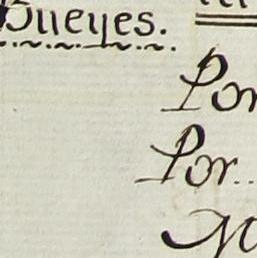 Bueyes.
Por
Por..